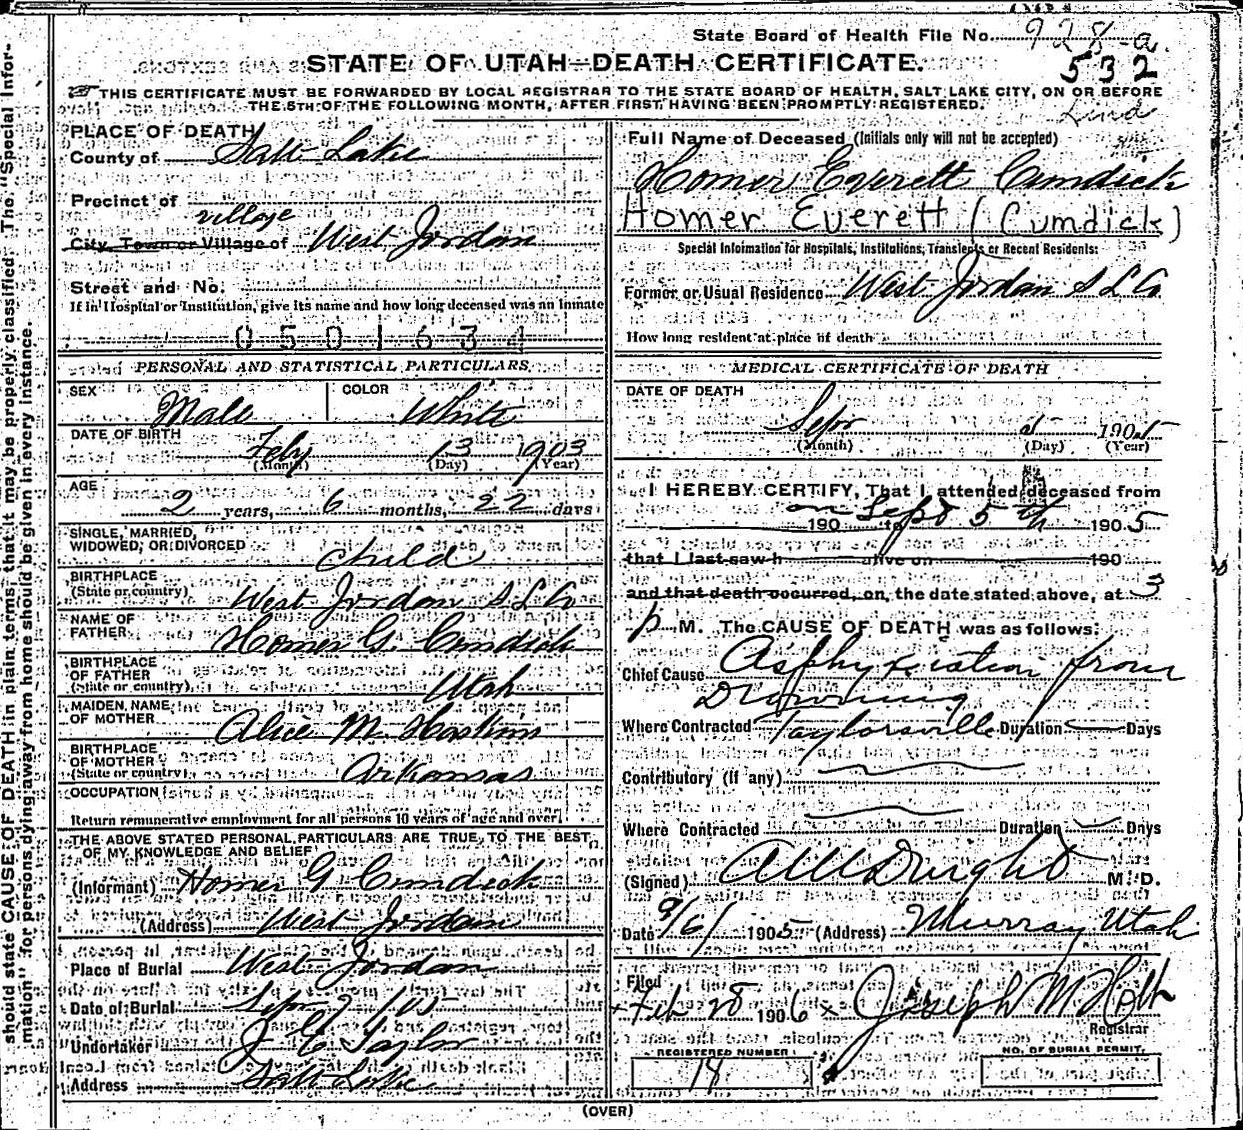 State Board of Health File No. 928-a.
532
STATE OF UTAH—DEATH CERTIFICATE.
THIS CERTIFICATE MUST BE FORWARDED BY LOCAL REGISTRAR TO THE STATE BOARD OF HEALTH, SALT LAKE CITY, ON OR BEFORE
THE 5TH OF THE FOLLOWING MONTH, AFTER FIRST HAVING BEEN PROMPTLY REGISTERED.
should state CAUSE OF DEATH in plain terms, that it may be properly classified. The "Special Infor-
mation" for persons dying away from home should be given in every instance.
PLACE OF DEATH
County of Salt Lake
Precinct of
village
City, Town or Village of West Jordan
Street and No.
If in Hospital or Institution, give its name and how long deceased was an inmate
0501634
PERSONAL AND STATISTICAL PARTICULARS
SEX Male COLOR White
DATE OF BIRTH Feby 13 1903
(Month) (Day) (Year)
AGE
2 years, 6 months, 22 days
SINGLE, MARRIED,
WIDOWED, OR DIVORCED child
BIRTHPLACE
(State or country) West Jordan S L Co
NAME OF
FATHER Homer G. Cundick
BIRTHPLACE
OF FATHER
(State or country) Utah
MAIDEN NAME
OF MOTHER Alice M Hoskins
BIRTHPLACE
OF MOTHER
(State or country) Arkansas
OCCUPATION
Return remunerative employment for all persons 10 years of age and over.
THE ABOVE STATED PERSONAL PARTICULARS ARE TRUE TO THE BEST
OF MY KNOWLEDGE AND BELIEF
(Informant) Homer G Cundick
(Address) West Jordan
Place of Burial West Jordan
Date of Burial 7 1905
Undertaker Taylor
Address Salt Lake
Full Name of Deceased (Initials only will not be accepted)
Homer Everett Cundick
Homer Everett (Cumdick)
Special Information for Hospitals, Institutions, Transients or Recent Residents:
Former or Usual Residence West Jordan S L Co
How long resident at place of death
MEDICAL CERTIFICATE OF DEATH
DATE OF DEATH
Sept 5 1905
(Month) (Day) (Year)
I HEREBY CERTIFY, That I attended deceased from
on Sept 5th
190 to 1905
that I last saw h alive on 190
and that death occurred, on the date stated above, at 3
p M. The CAUSE OF DEATH was as follows:
Chief Cause Asphyxiation from
Drowning
Where Contracted Taylorsville Duration Days
Contributory (if any)
Where Contracted Duration Days
(Signed) M. D.
Date 9/6/ 1905 (Address) Murray Utah
Filed
Feb 28 1906 x Joseph M Holt
Registrar
REGISTERED NUMBER NO. OF BURIAL PERMIT.
14
(OVER)